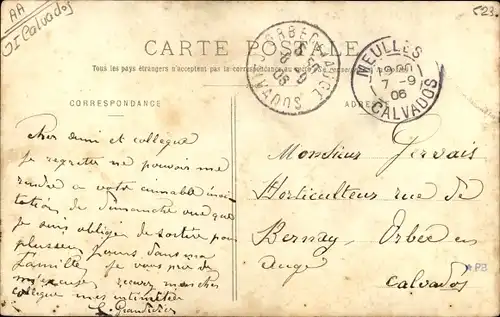 AA
OI Calvados
523.
CARTE POSTALE
Tous les pays étrangers n'acceptent pas la correspondance au recto
ORBEC EN AUGE
CALVADOS
MEULLES
7 -9
06
CALVADOS
CORRESPONDANCE
Cher ami et collegue
Je regrette ne pouvoir me
rendre a votre aimable invi
tation de dimanche vue que
je suis oblige de sortire pour
plusieur jours dans ma
Famille je vous prie de
m'excuser recevez mon cher
collegue mes
Monsieur Gervais
Horticulteur rue de
Bernay, Orbec en
auge
Calvados
★PB